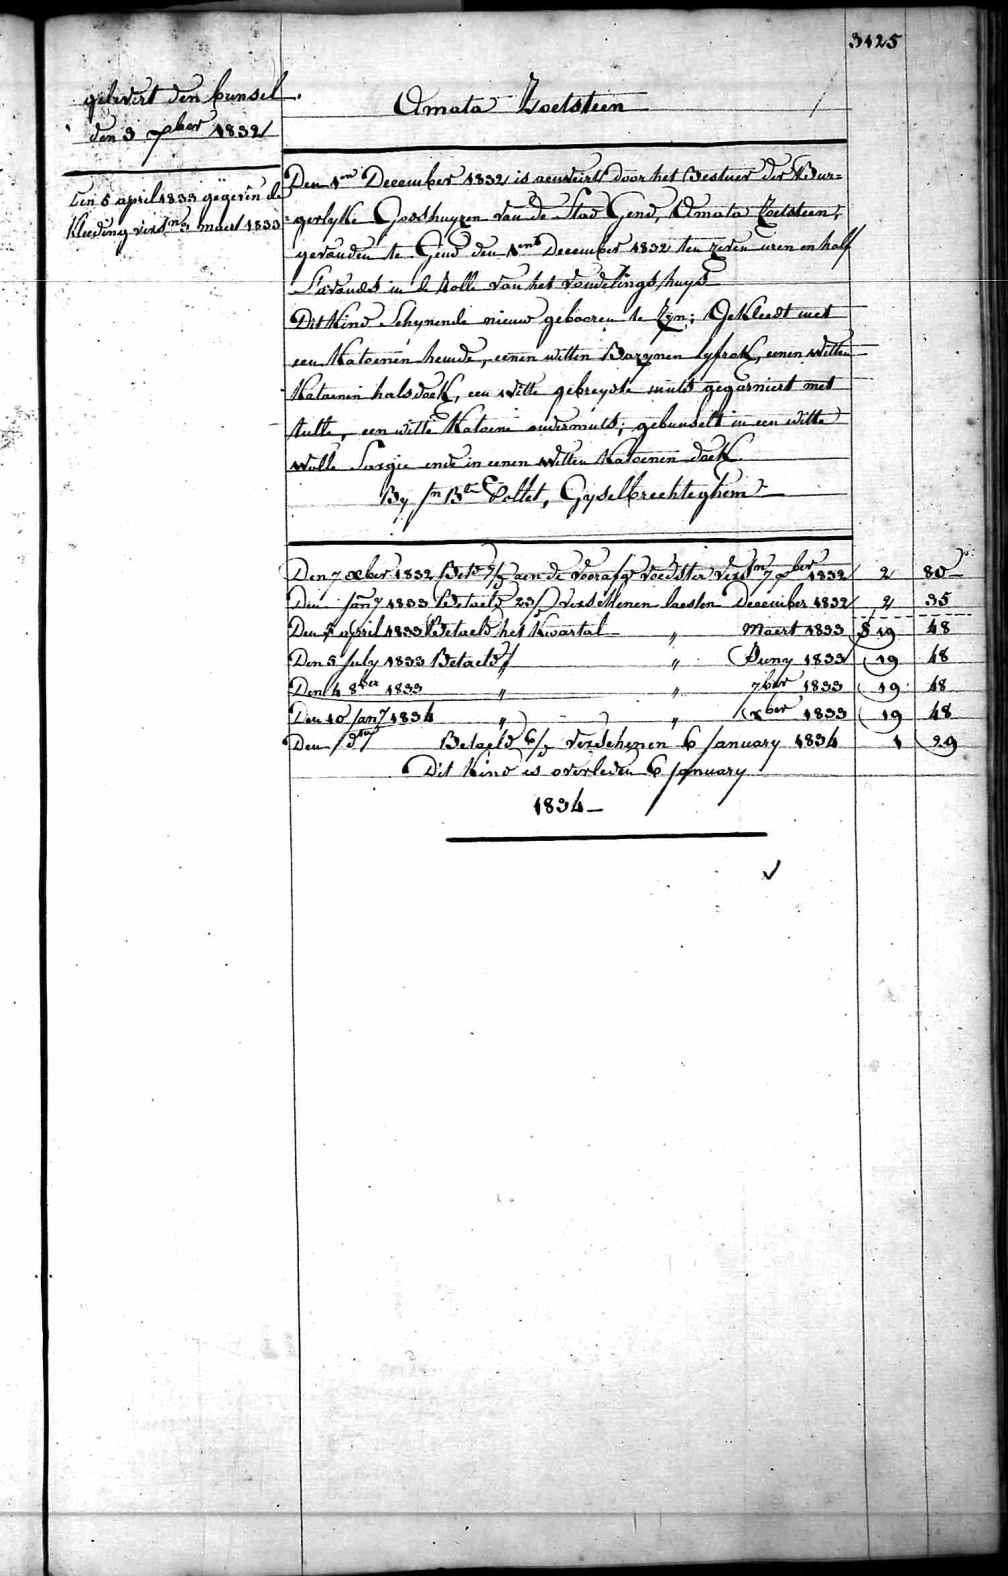 3125
gelevert den bunsel
den 3 xber 1832
Amata Zoetsteen
Den 5 april 1833 gegeven de
Kleeding verst. maert 1833
Den 1en December 1832 is aenveirt door het Bestuer der Bur=
=gerlyke Godshuyzen van de Stad Gend, Amata Zoetsteen,
gevonden te Gend den 1en December 1832 ten zeven uren en half
S'avonds in de Rolle van het vondelings huys
Dit Kind Schynende nieuw gebooren te Zyn; Gekleedt met
een Katoenen hemde, eenen witten Bazynen lyfrok, eenen witten
Katoenen halsdoek, een witte gebreyde muts gegarniert met
tulle, een witte Katoene ondermuts; gebunselt in een witte
wolle Sargie ende in eenen witten Katoenen doek
By Bte Collet, Gyselbrechteghem
Den 7 xber 1832 Bet. aen de voedster 7 xber 1832 2 80
Den Jany 1833 Betaeld 23/ verschenen laesten December 1832 2 35
Den 5 april 1833 Betaeld het Kwartal " Maert 1833 19 48
Den 5 July 1833 Betaeld " " Juny 1833 19 48
Den 4 8ber 1833 " " 7ber 1833 19 48
Den 10 Jany 1834 " " xber 1833 19 48
Den do Betaeld 6/ verschenen 6 January 1834 1 29
Dit Kind is overleden 6 January
1834